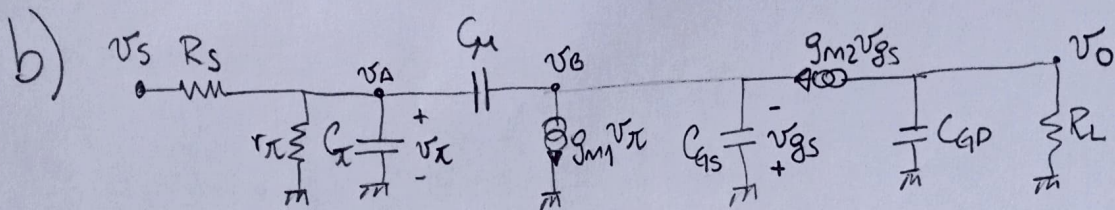 b)
vs Rs vA Cμ vB gm2vgs vo
rπ Cπ + vπ - gm1vπ CGS - vgs + CGD RL